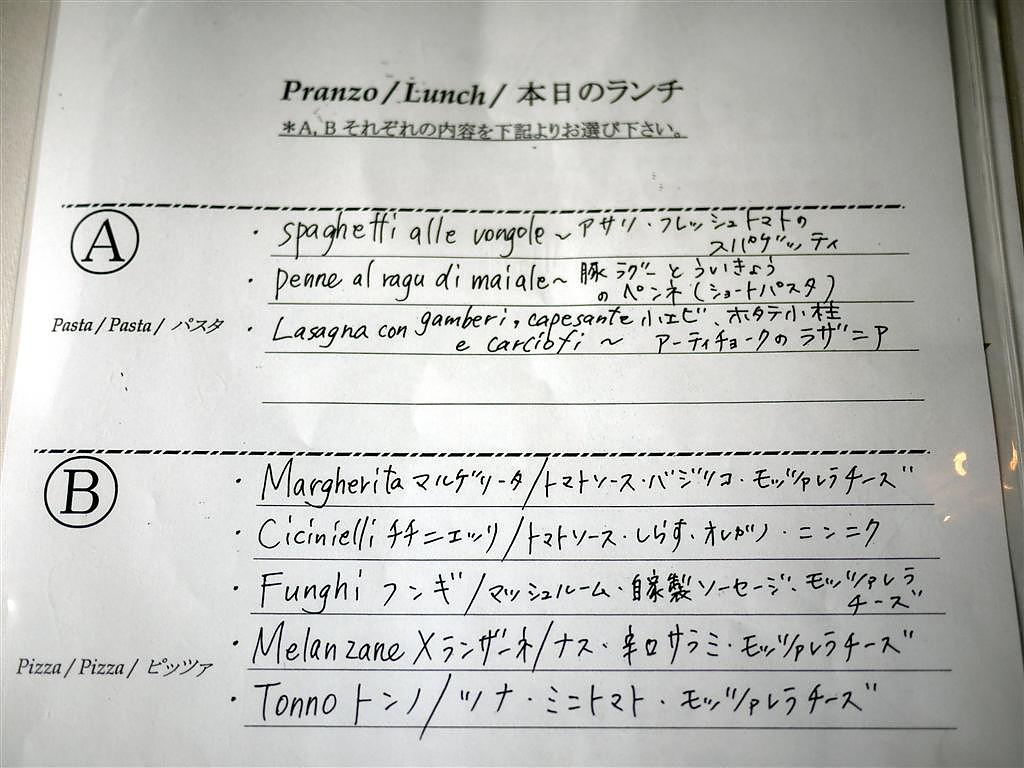 Pranzo / Lunch / 本日のランチ
＊A, B それぞれの内容を下記よりお選び下さい。
A
・spaghetti alle vongole ~ アサリ・フレッシュトマトの
スパゲッティ
・penne al ragu di maiale ~ 豚ラグーとういきょう
のペンネ(ショートパスタ)
Pasta / Pasta / パスタ
・Lasagna con gamberi, capesante 小エビ、ホタテ小柱
e carciofi ~ アーティチョークのラザニア
B
・Margherita マルゲリータ/トマトソース・バジリコ・モッツァレラチーズ
・Cicinielli チチニエッリ/トマトソース・しらす・オレガノ・ニンニク
・Funghi フンギ/マッシュルーム・自家製ソーセージ、モッツァレラ
チーズ
・Melanzane メランザーネ/ナス・辛口サラミ・モッツァレラチーズ
Pizza / Pizza / ピッツァ
・Tonno トンノ/ツナ・ミニトマト・モッツァレラチーズ